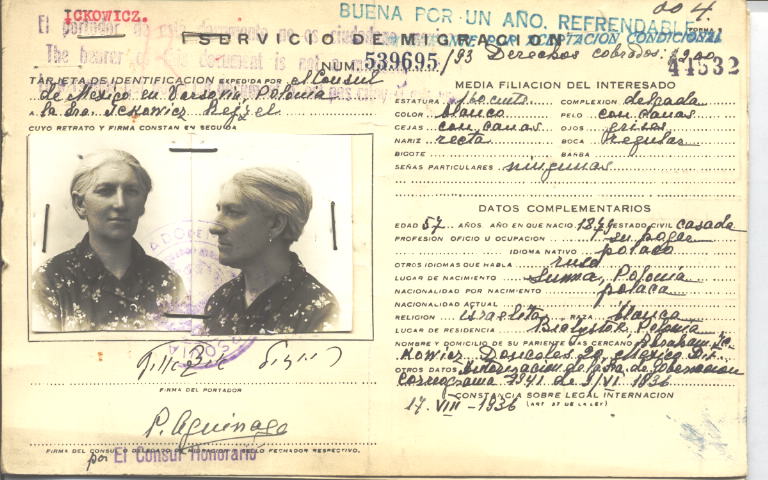 ICKOWICZ.
BUENA POR UN AÑO. REFRENDABLE
SERVICIO DE MIGRACION
El portador de este documento no es ciudadano
The bearer of this document is not a
NUM. 539695/93 Derechos cobrados:
44532
TARJETA DE IDENTIFICACION EXPEDIDA POR el Consul
de Mexico en Varsovia, Polonia
A la Sra. Ickowicz Bejzel
CUYO RETRATO Y FIRMA CONSTAN EN SEGUIDA
FIRMA DEL PORTADOR
P. Aguinaga
por El Consul Honorario
MEDIA FILIACION DEL INTERESADO
ESTATURA COMPLEXION delgada
COLOR blanco PELO con canas
CEJAS con canas OJOS grises
NARIZ recta BOCA Regular
BIGOTE BARBA
SEÑAS PARTICULARES ningunas
DATOS COMPLEMENTARIOS
EDAD 57 AÑOS. AÑO EN QUE NACIO 1879 ESTADO CIVIL casada
PROFESION OFICIO U OCUPACION su hogar
IDIOMA NATIVO polaco
OTROS IDIOMAS QUE HABLA ruso
LUGAR DE NACIMIENTO Polonia
NACIONALIDAD POR NACIMIENTO polaca
NACIONALIDAD ACTUAL
RELIGION israelita RAZA blanca
LUGAR DE RESIDENCIA Bialystok Polonia
NOMBRE Y DOMICILIO DE SU PARIENTE MAS CERCANO Abraham Ic-
kowicz Donceles 20, Mexico D.F.
OTROS DATOS Autorizacion de la Sra. de Gobernacion
de 9/VI 1936
CONSTANCIA SOBRE LEGAL INTERNACION
17. VIII - 1936 (ART 57 DE LA LEY)